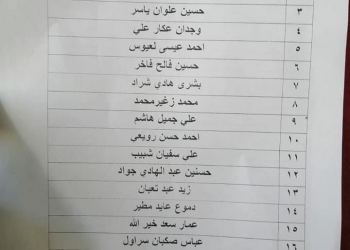 ٣ حسين علوان ياسر
٤ وجدان عكار علي
٥ احمد عيسى لعيوس
٦ حسين فالح فاخر
٧ بشرى هادي شراد
٨ محمد زغيرمحمد
٩ علي جميل هاشم
١٠ احمد حسن رويعي
١١ علي سفيان شبيب
١٢ حسنين عبد الهادي جواد
١٣ زيد عبد تعبان
١٤ دموع عايد مطير
١٥ عمار سعد خير الله
١٦ عباس صكبان سراول